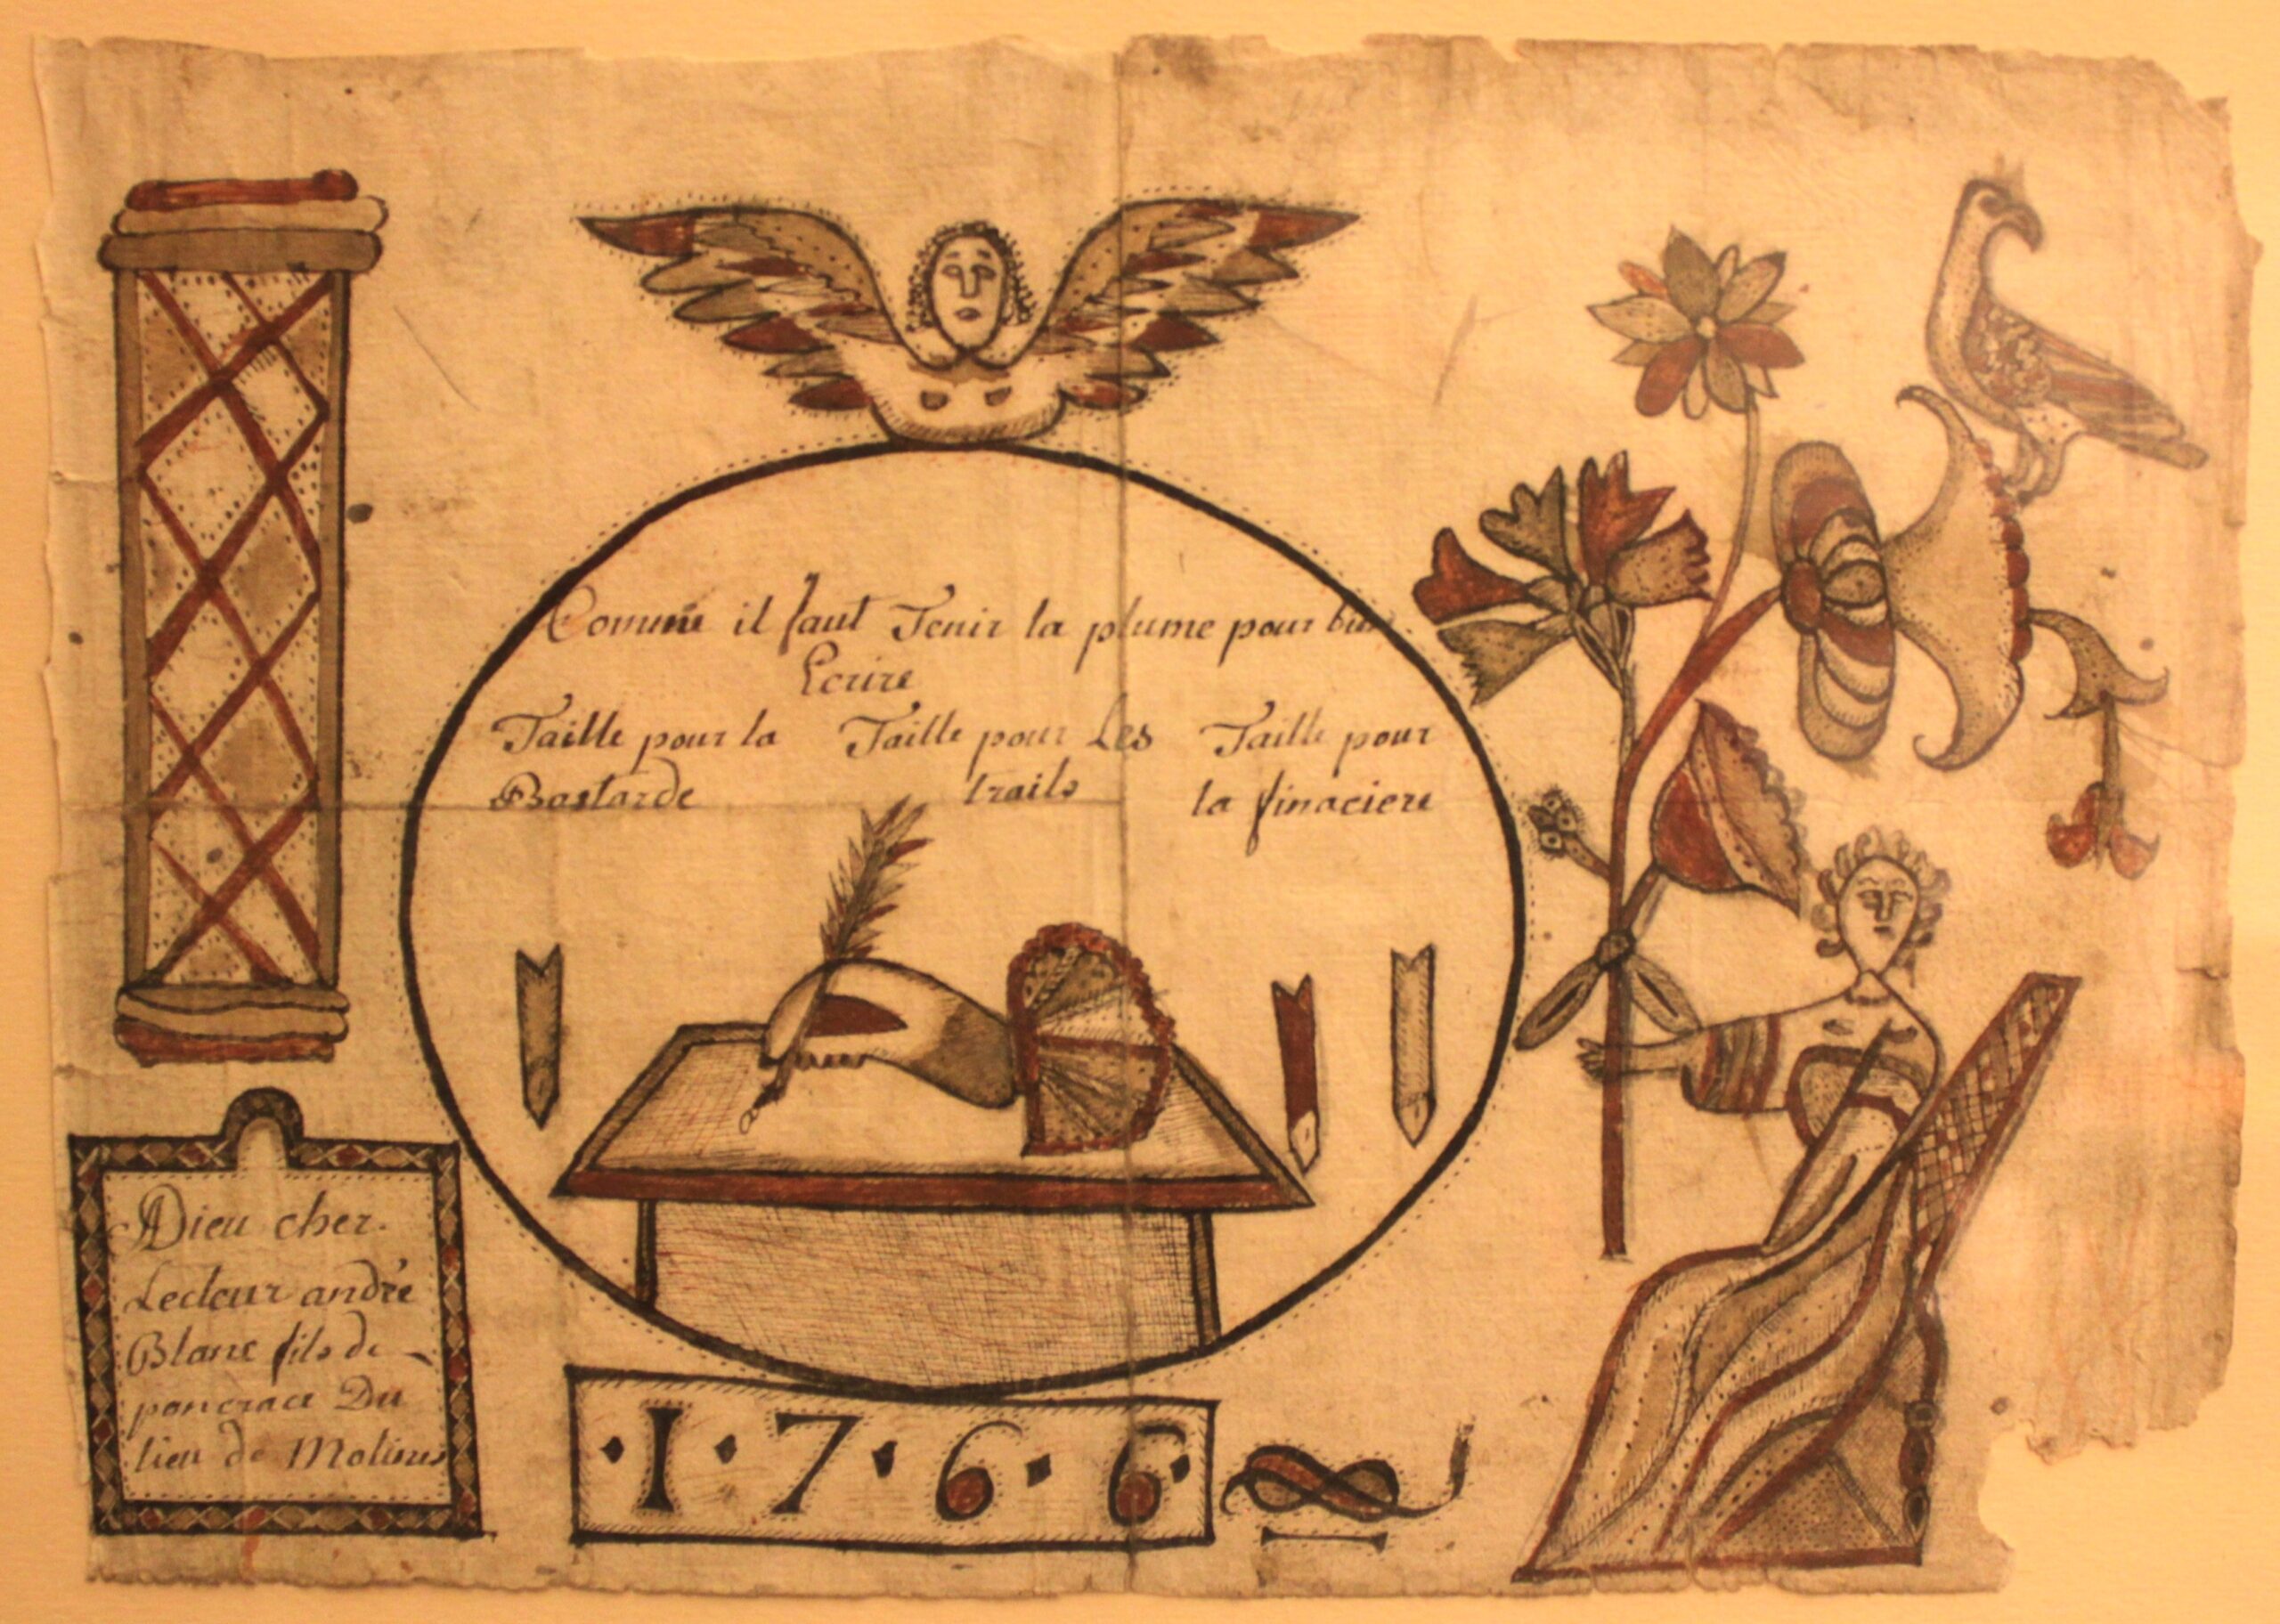 Comme il faut Tenir la plume pour bien
Ecrire
Taille pour la
Bastarde
Taille pour Les
traits
Taille pour
la finaciere
ADieu cher
Lecteur andré
Blanc fils de
poncrace Du
lieu de Molines
1766